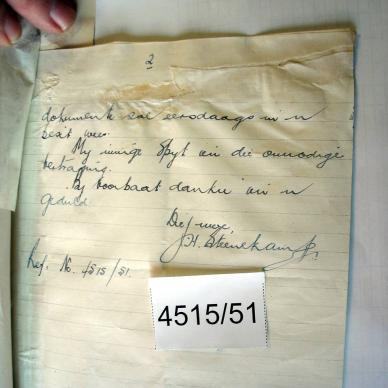 2
dokumente sal eersdaags in u
besit wees.
My innige spyt vir die onnodige
vertraging.
By voorbaat dankie vir u
geduld.
Die uwe,
J.H. Steenekamp.
Ref. No. 4515/51.
4515/51